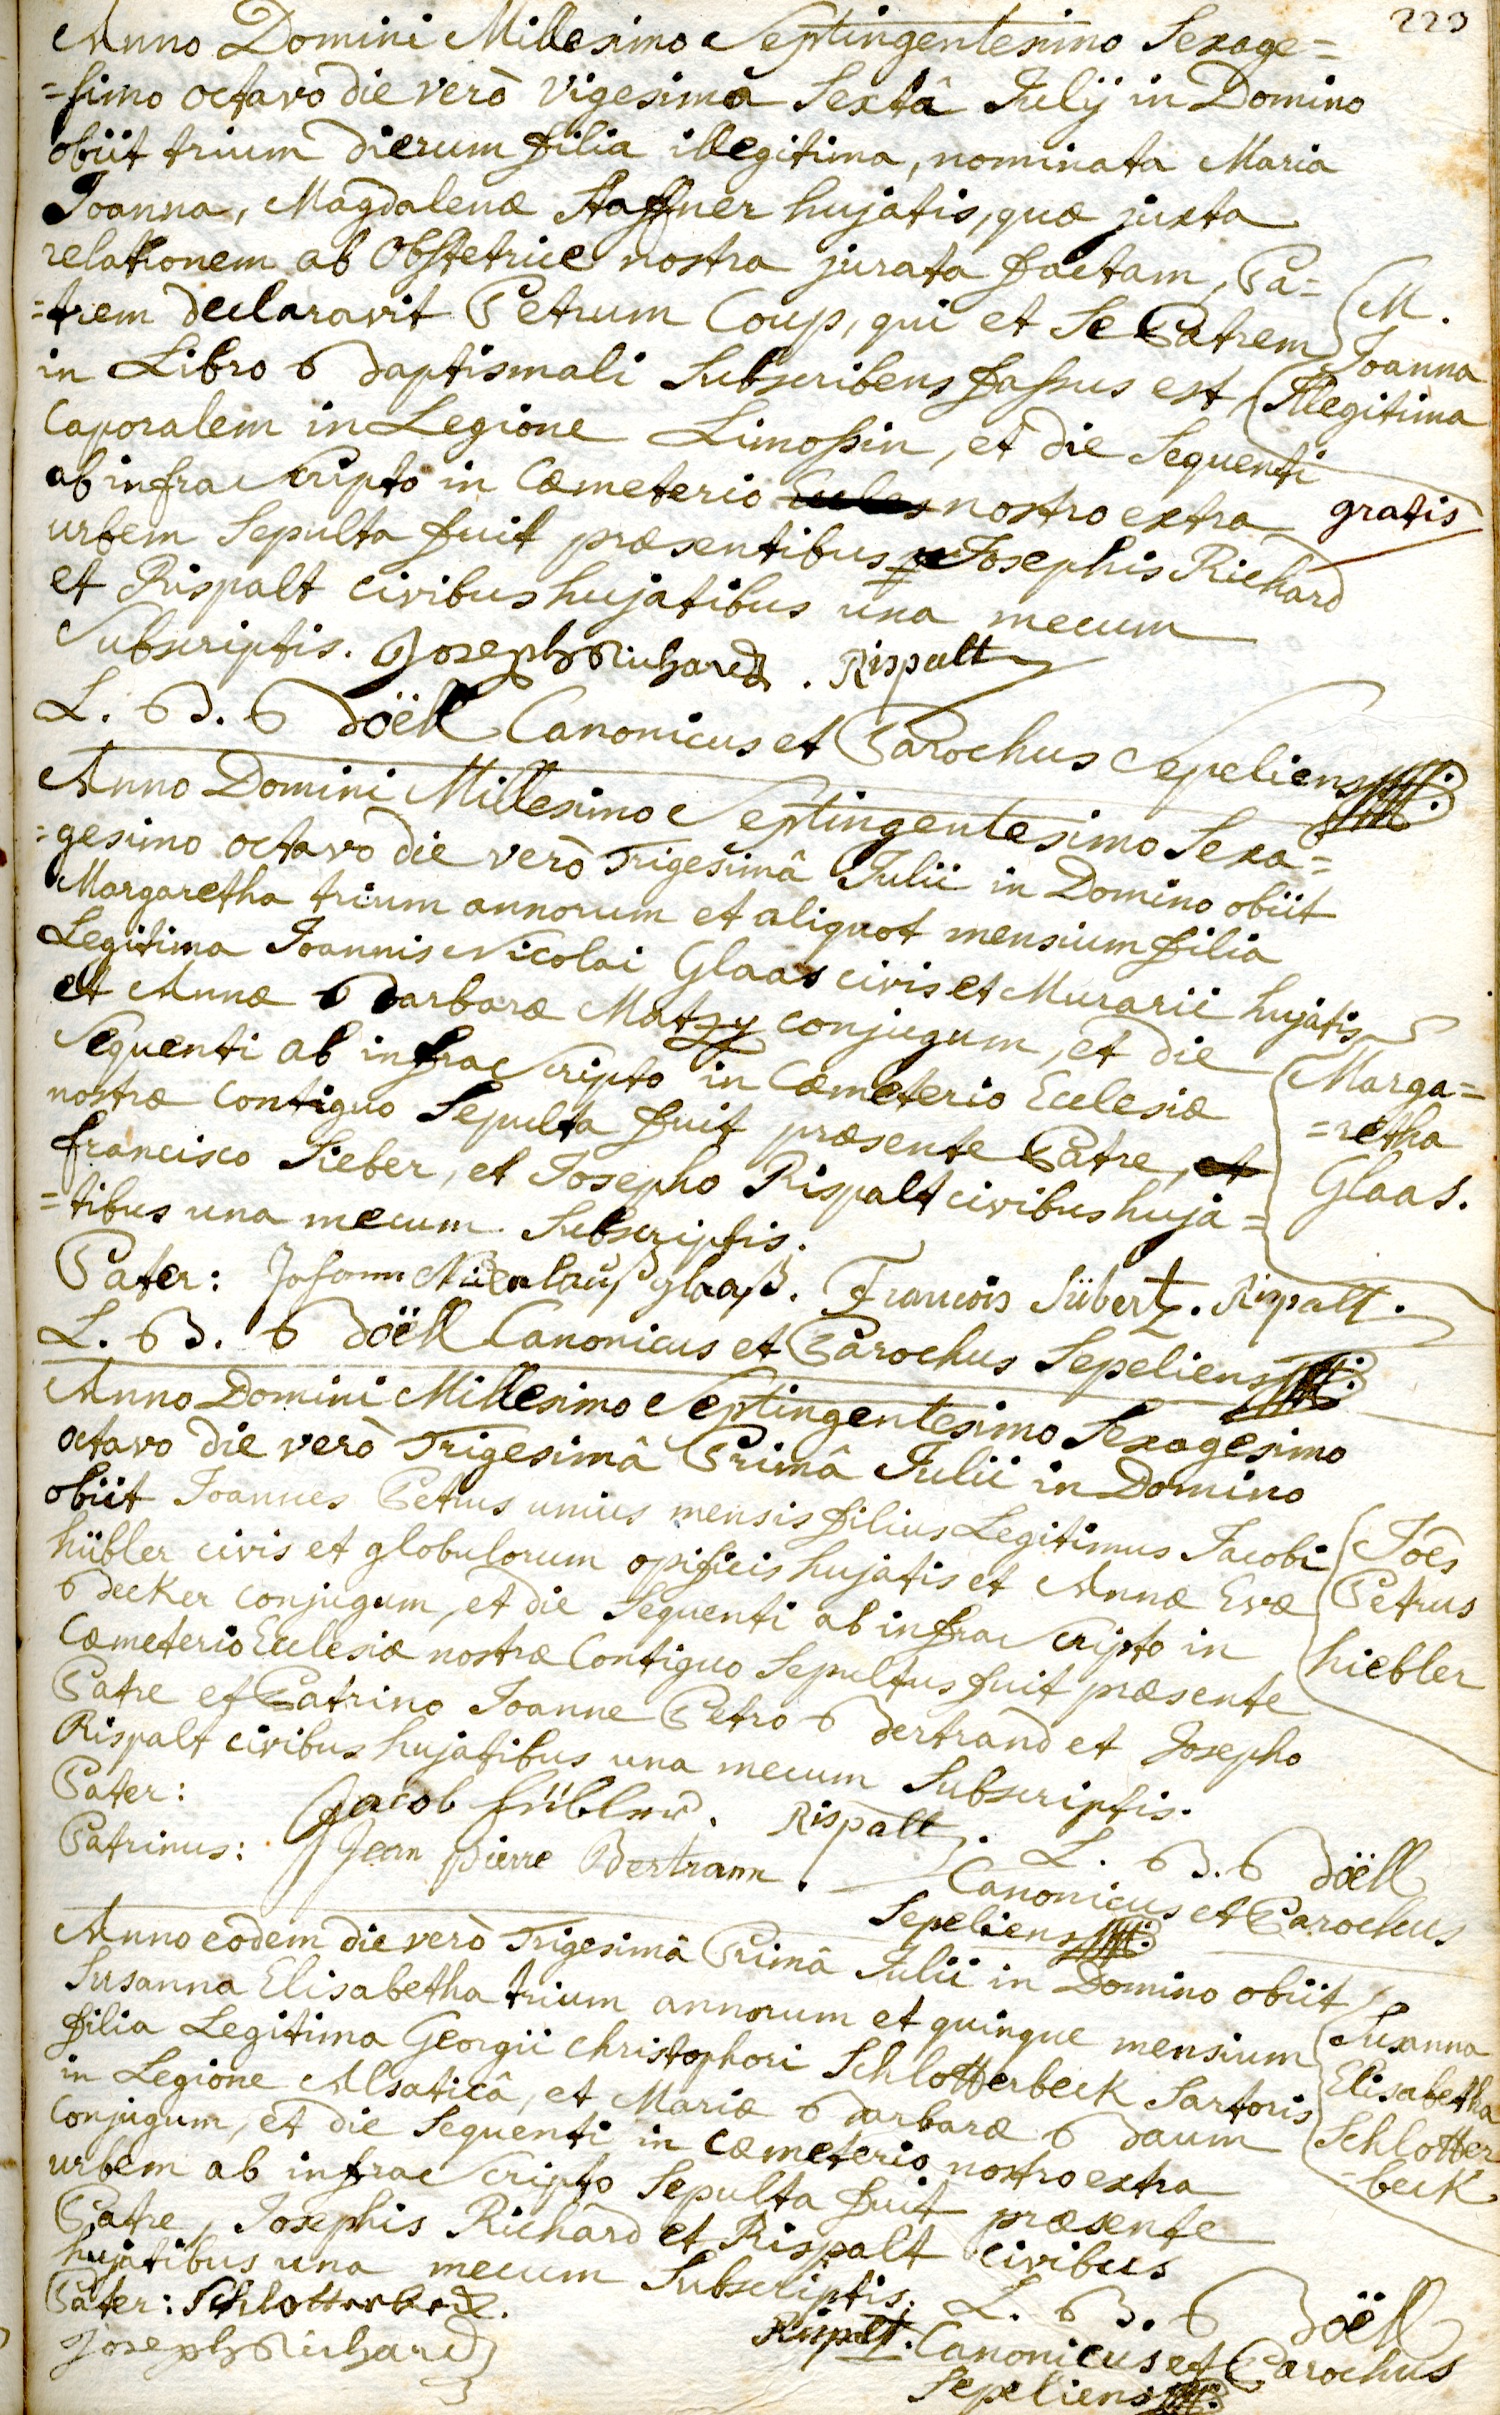 223
Anno Domini Millesimo Septingentesimo Sexage=
=simo octavo die verò vigesimâ Sextâ Julij in Domino
obiit trium dierum filia illegitima, nominata Maria
Joanna, Magdalenæ Staffner hujatis, quæ juxta
relationem ab Obstetrice nostra jurata factam, Pa=
=trem declaravit Petrum Coup, qui et Se Patrem
in Libro Baptismali Subscribens fassus est
Caporalem in Legione Limossin, et die Sequenti
ab infra Scripto in Cæmeterio nostro extra
urbem Sepulta fuit præsentibus Josephis Richard
et Rispalt civibus hujatibus una mecum
Subscriptis. Joseph Richard. Rispalt
M.
Joanna
Illegitima
gratis
L. B. Böell Canonicus et Parochus Sepeliens
Anno Domini Millesimo Septingentesimo Sexa=
=gesimo octavo die verò Trigesimâ Julii in Domino obiit
Margaretha trium annorum et aliquot mensium filia
Legitima Joannis Nicolai Glaas civis et Murarii hujatis
et Annæ Barbaræ Matzy conjugum, et die
Sequenti ab infra Scripto in Cæmeterio Ecclesiæ
nostræ Contiguo Sepulta fuit præsente Patre, et
francisco Sieber, et Josepho Rispalt civibus huja=
=tibus una mecum Subscriptis.
Marga=
=retha
Glaas.
Pater: Johann Nicolauß glaaß. Francois Sübert. Rispalt.
L. B. Böell Canonicus et Parochus Sepeliens
Anno Domini Millesimo Septingentesimo Sexagesimo
octavo die verò Trigesimâ Primâ Julii in Domino
obiit Joannes Petrus unius mensis filius Legitimus Jacobi
hübler civis et globulorum opificis hujatis et Annæ Evæ
Becker conjugum, et die Sequenti ab infra Scripto in
Cæmeterio Ecclesiæ nostræ Contiguo Sepultus fuit præsente
Patre et Patrino Joanne Petro Bertrand et Josepho
Rispalt civibus hujatibus una mecum Subscriptis.
Joēs
Petrus
hiebler
Pater: Jacob hübler. Rispalt.
Patrinus: Jean pierre Bertrann.
L. B. Böell
Canonicus et Parochus
Sepeliens
Anno eodem die verò Trigesimâ Primâ Julii in Domino obiit
Susanna Elisabetha trium annorum et quinque mensium
filia Legitima Georgii christophori Schlotterbeck Sartoris
in Legione Alsaticâ, et Mariæ Barbaræ Baum
Conjugum, et die Sequenti in cæmeterio nostro extra
urbem ab infra Scripto Sepulta fuit præsente
Patre, Josephis Richard et Rispalt civibus
hujatibus una mecum Subscriptis.
Susanna
Elisabetha
Schlotter
=beck
Pater: Schlotterbeck.
Joseph Richard
Rispalt.
L. B. Böell
Canonicus et Parochus
Sepeliens